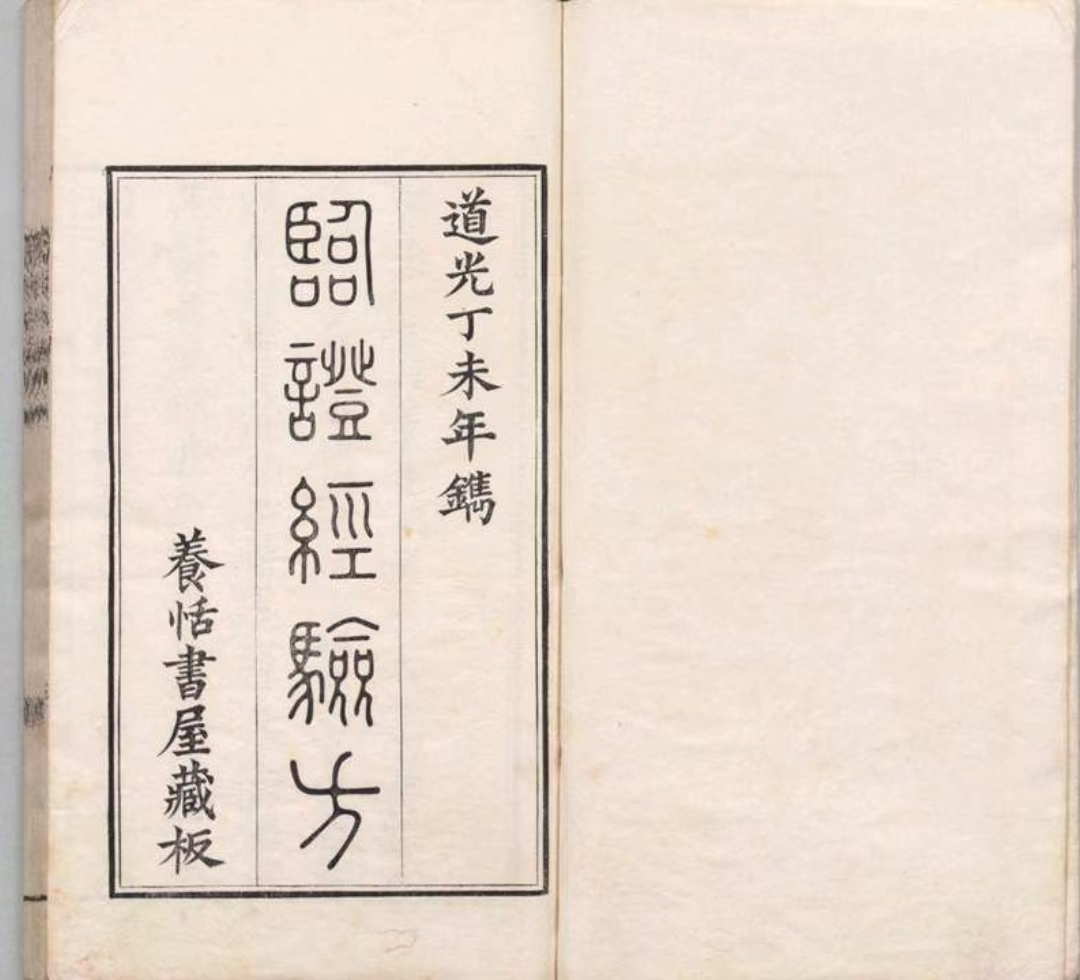 道光丁未年鐫
臨證經驗方
養恬書屋藏板